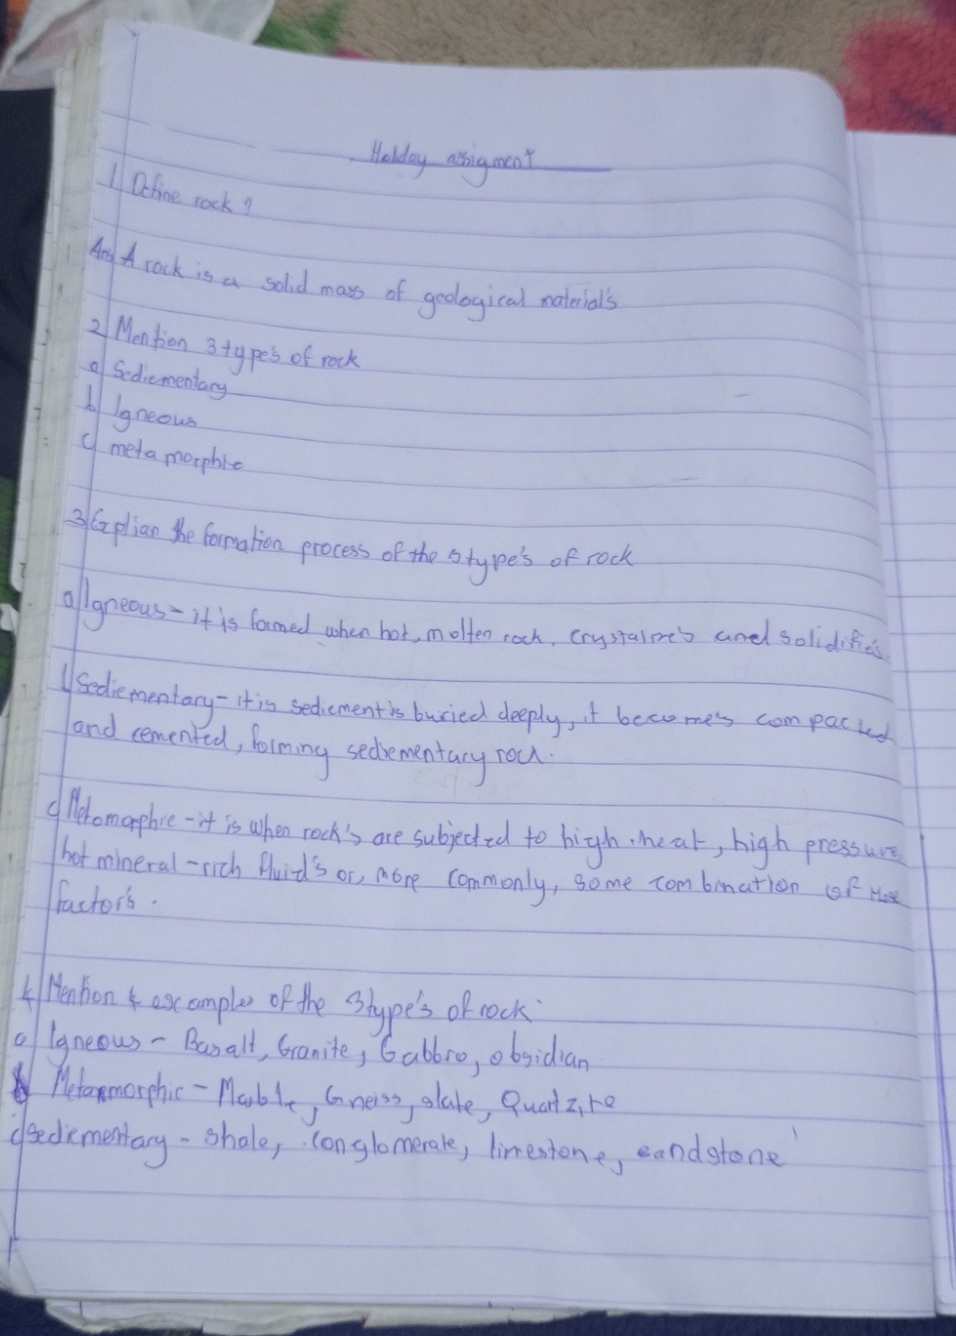 Holiday assigment
1 Define rock?
Ans A rock is a solid mass of geological material's
2 Mention 3 type's of rock
a Sediementary
b Igneous
c metamorphic
3 Explian the formation process of the 3 type's of rock
a Igneous - it is formed when hot, molten rock, crystalize's and solidifies.
b Sediementary - it is sediement is buried deeply, it become's compacted
and cemented, forming sediementary rock.
c Metamorphic - it is when rock's are subjected to high heat, high pressure,
hot mineral - rich fluid's or, more commonly, some combination of
factor's.
4 Mention 4 examples of the 3 type's of rock
a Igneous - Basalt, Granite, Gabbro, obsidian
b Metamorphic - Marble, Gneiss, slate, Quartzite
c Sediementary - shale, conglomerate, limestone, sandstone